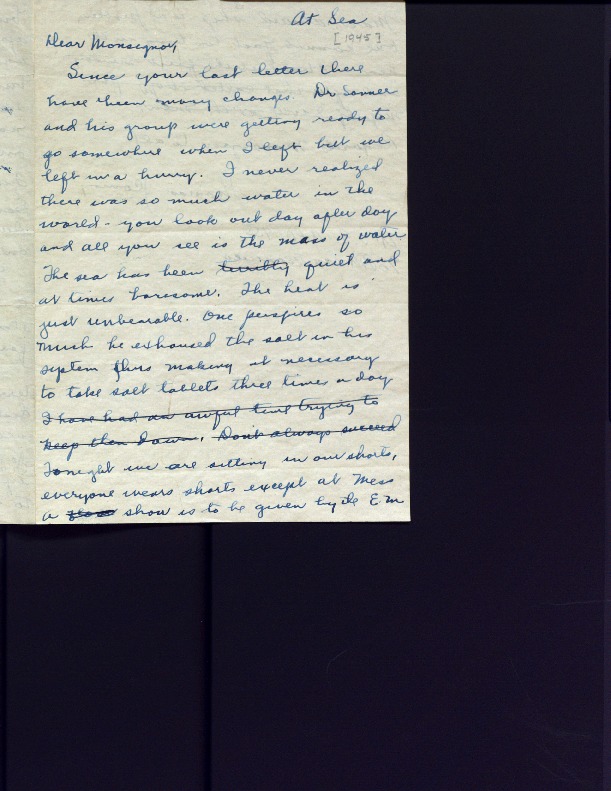 At Sea
[1945]
Dear Monsignor,
Since your last letter there
have been many changes Dr Sonnee
and his group were getting ready to
go somewhere when I left but we
left in a hurry. I never realized
there was so much water in the
world - you look out day after day
and all you see is the mass of water
The sea has been terribly quiet and
at times boresome. The heat is
just unbearable. One perspires so
much he exhaused the salt in his
system thus making it necessary
to take salt tablets three times a day
I have had an awful time trying to
keep then down. Don't always succeed
Tonight we are sitting in our shorts,
everyone wears shorts except at mess
a show is to be given by the E m